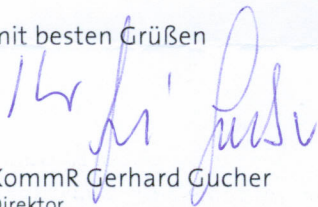 mit besten Grüßen
KommR Gerhard Gucher
Direktor